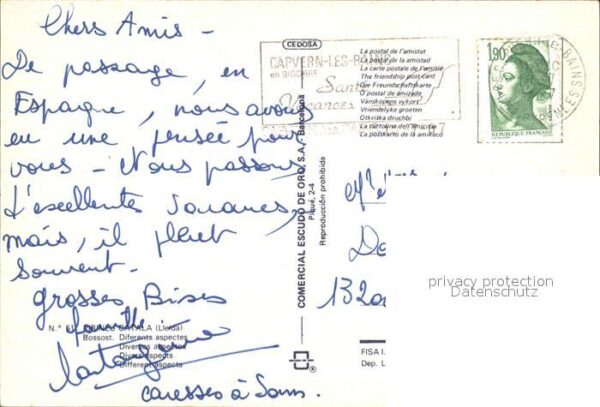 Chers Amis -
De passage, en
Espagne, nous avons
eu une pensée pour
vous - Nous passons
d'excellentes
mais, il pleut
souvent.
grosses Bises
famille
caresses à
N.° PIRINEU CATALA (Lleida)
Bossost. Diferents aspectes
Diversos aspectos
Divers aspects
Different aspects
CEDOSA
CAPVERN-LES-BAINS
en BIGORRE
Santé
Vacances
La postal de l'amistat
La postal de la amistad
La carte postale de l'amitié
The friendship post card
Die Freundschaftskarte
O postal de amizade
Vänskapens vykort
Vriendelijke groeten
Otkritka druchbi
La cartolina dell'amicizia
COMERCIAL ESCUDO DE ORO, S.A. - Barcelona
Piqué, 2-4
Reproducción prohibida
1,90
REPUBLIQUE FRANÇAISE
BAINS
132
FISA I.
Dep. L
privacy protection
Datenschutz